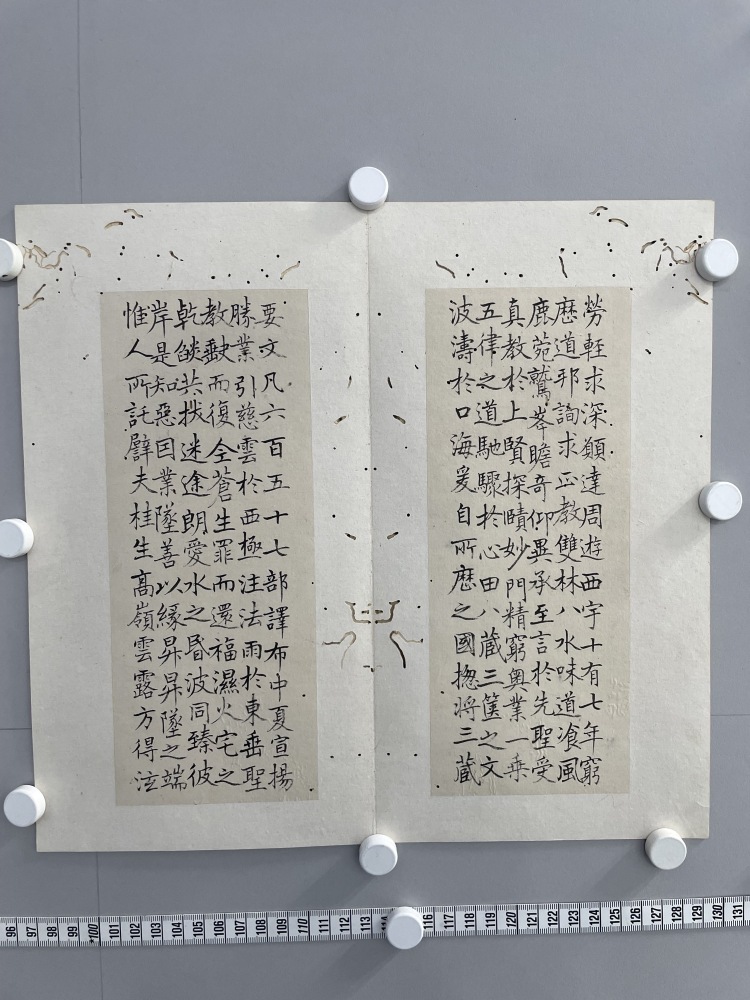 勞輊求深願達周遊西宇十有七年窮
歷道邦詢求正教雙林八水味道飡風
鹿菀鷲峯瞻奇仰異承至言於先聖受
真教於上賢探賾妙門精窮奧業一乗
五律之道馳驟於心田八藏三篋之文
波濤於口海爰自所歷之國揔將三藏
要文凡六百五十七部譯布中夏宣揚
勝業引慈雲於西極注法雨於東垂聖
教缺而復全蒼生罪而還福濕火宅之
乾燄共拔迷途朗愛水之昬波同臻彼
岸是知惡因業墜善以緣昇昇墜之端
惟人所託譬夫桂生高嶺雲露方得泫
96 97 98 99 *100 101 102 103 104 105 106 107 108 109 110 111 112 113 114 116 117 118 119 120 121 122 123 124 125 126 127 128 129 130 131